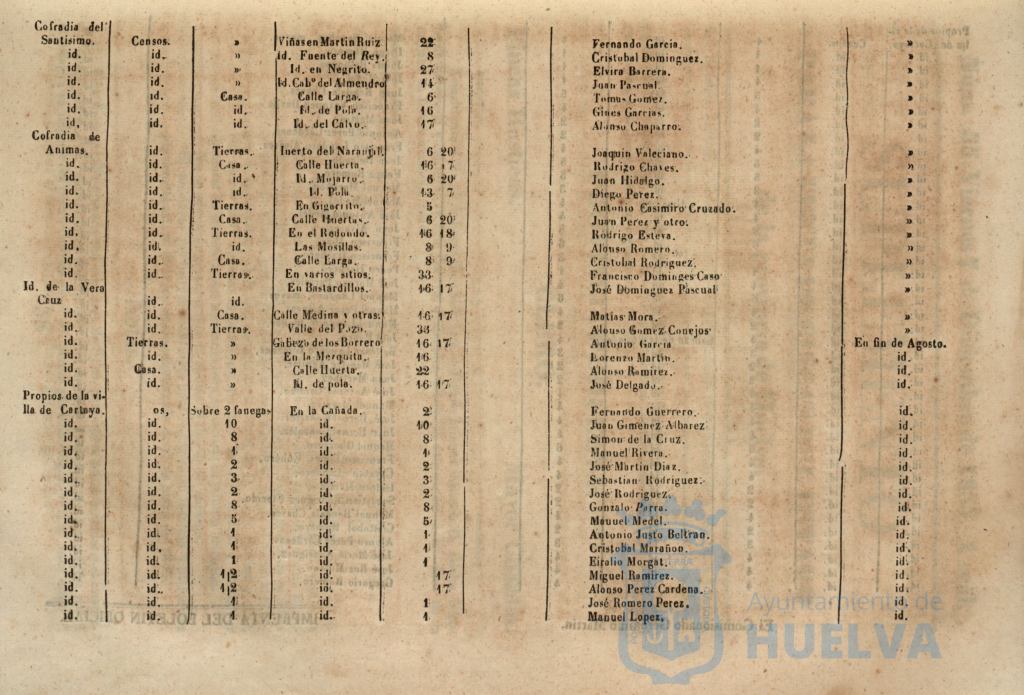 Cofradia del
Santisimo. Censos. » Viñas en Martin Ruiz 22 Fernando Garcia. »
id. id. » id. Fuente del Rey. 8 Cristobal Dominguez. »
id. id. » Id. en Negrito. 27 Elvira Barrera. »
id. id. » Id. Cabº del Almendro 14 Juan Pascual. »
id. id. Casa. Calle Larga. 6 Tomas Gomez. »
id. id. id. Id. de Pola. 16 Gines Garcias. »
id. id. id. Id. del Calvo. 17 Alonso Chaparro. »
Cofradia de
Animas. id. Tierras. Huerto del Naranjal. 6 20 Joaquin Valeciano. »
id. id. Casa. Calle Huerta. 16 17 Rodrigo Chaves. »
id. id. id. Id. Mojarro. 6 20 Juan Hidalgo. »
id. id. id. Id. Pola. 13 7 Diego Perez. »
id. id. Tierras. En Gigarrito. 5 Antonio Casimiro Cruzado. »
id. id. Casa. Calle Huertas. 6 20 Juan Perez y otro. »
id. id. Tierras. En el Redondo. 16 18 Rodrigo Esteva. »
id. id. id. Las Mosillas. 8 9 Alonso Romero. »
id. id. Casa. Calle Larga. 8 9 Cristobal Rodriguez. »
id. id. Tierras. En varios sitios. 33 Francisco Dominges Caso »
Id. de la Vera En Bastardillos. 16 17 José Dominguez Pascual »
Cruz id. id.
id. id. Casa. Calle Medina y otras. 16 17 Matias Mora. »
id. id. Tierras. Valle del Pozo. 33 Alonso Gomez Conejos »
id. Tierras. » Cabezo de los Borrero 16 17 Antonio Garcia En fin de Agosto.
id. id. » En la Mezquita. 16 Lorenzo Martin. id.
id. Casa. » Calle Huerta. 22 Alonso Ramirez. id.
id. id. » Id. de pola. 16 17 José Delgado. id.
Propios de la vi-
lla de Cartaya. os, Sobre 2 fanegas En la Cañada. 2 Fernando Guerrero. id.
id. id. 10 id. 10 Juan Gimenez Albarez id.
id. id. 8 id. 8 Simon de la Cruz. id.
id. id. 1 id. 1 Manuel Rivera. id.
id. id. 2 id. 2 José Martin Diaz. id.
id. id. 3 id. 3 Sebastian Rodriguez. id.
id. id. 2 id. 2 José Rodriguez. id.
id. id. 8 id. 8 Gonzalo Parra. id.
id. id. 5 id. 5 Manuel Medel. id.
id. id. 1 id. 1 Antonio Justo Beltran. id.
id. id. 1 id. 1 Cristobal Marañon. id.
id. id. 1 id. 1 Eifalio Morgat. id.
id. id. 1|2 id. 17 Miguel Ramirez. id.
id. id. 1|2 id. 17 Alonso Perez Cardena. id.
id. id. 1 id. 1 José Romero Perez. id.
id. id. 1 id. 1 Manuel Lopez. id.
Ayuntamiento de
HUELVA